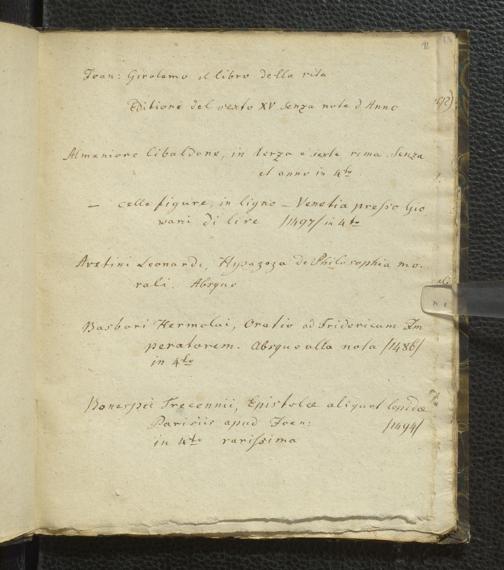 Joan: Girolamo il libro della vita
Editione del sexto XV senza note d'Anno
Almeniore Cibaldone, in terza e sexte rima senza
et anno in 4to
— colle figure, in ligno — Venetia presso Gio
vani di lire /1497/ in 4to
Aretini Leonardi, Hysagoga de Philosophia mo-
rali. Absque
Barbari Hermolai, Oratio ad Fridericum Im
peratorem. Absque ulla nota /1486/
in 4to
Trecennii, Epistolæ aliquot
Parisiis apud Joan: /1494/
in 4to rarissima